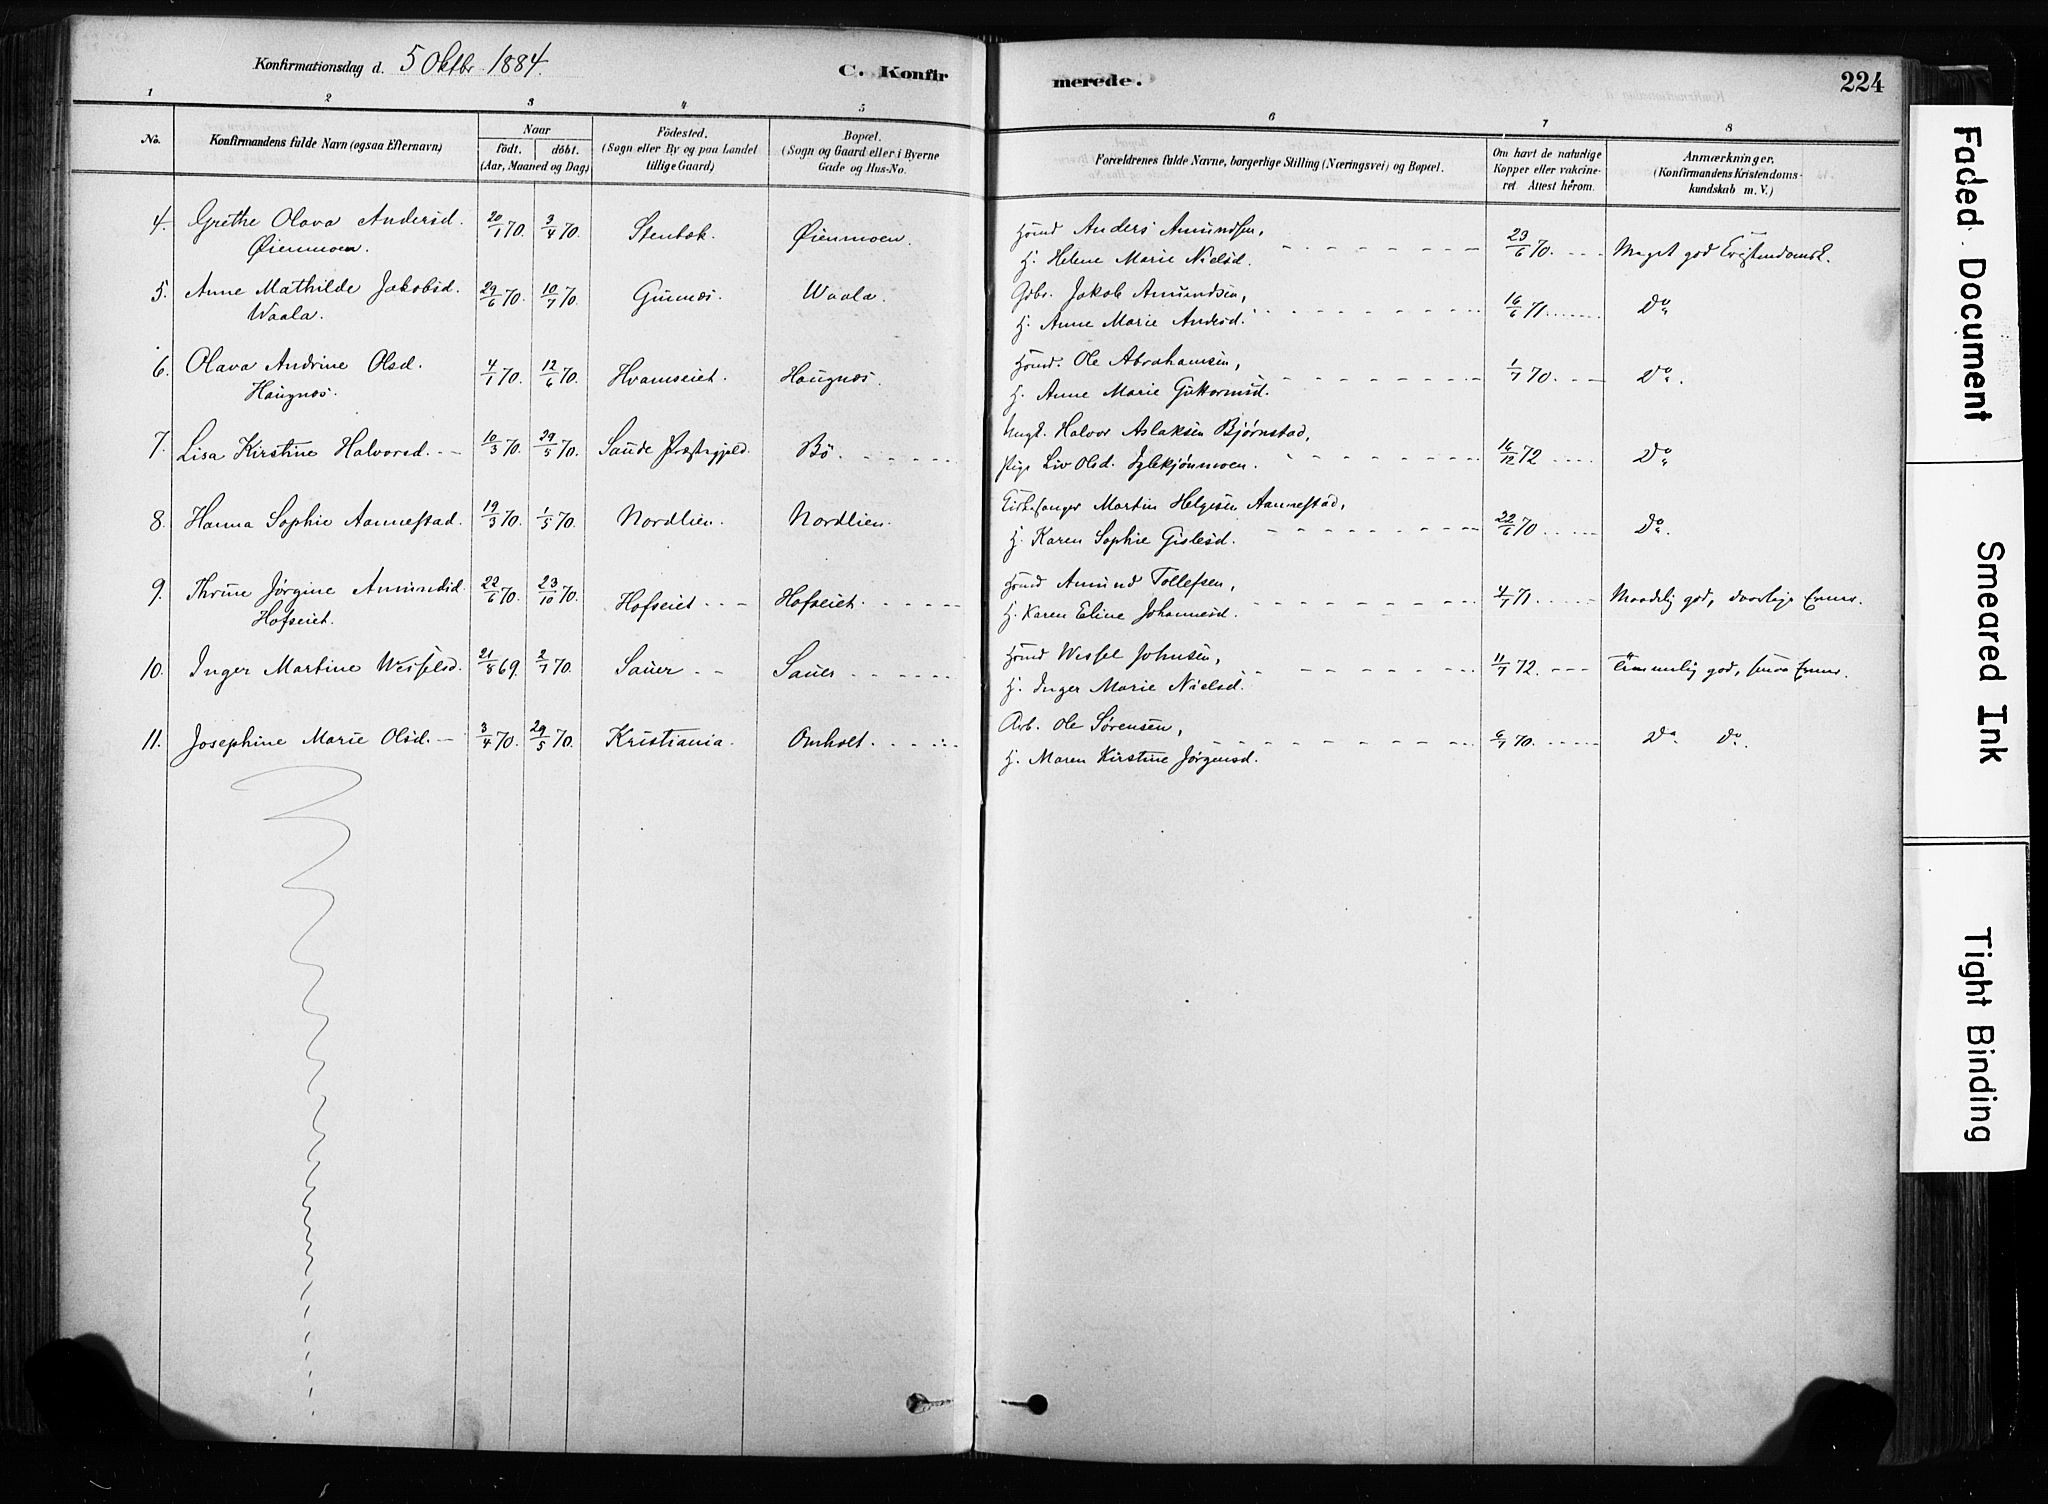 Konfirmationsdag d. 5 Oktbr 1884.
C. Konfirmerede.
224
1 2 3 4 5 6 7 8
No.
Konfirmandens fulde Navn (ogsaa Efternavn)
Naar
født. døbt.
(Aar, Maaned og Dag)
Fødested.
(Sogn eller By og paa Landet
tillige Gaard)
Bopæl.
(Sogn og Gaard eller i Byerne
Gade og Hus-No.
Forældrenes fulde Navne, borgerlige Stilling (Næringsvei) og Bopæl.
Om havt de naturlige
Kopper eller vakcine-
ret Attest herom.
Anmærkninger.
(Konfirmandens Kristendoms-
kundskab m. V.)
4. Grethe Olava Andersd. 20/1 70. 3/4 70. Stenbæk. Øienmoen. Hsmd Anders Amundsen, 23/6 70. Meget god Cristendomsk.
Øienmoen. H. Helene Marie Nielsd.
5. Anne Mathilde Jakobsd. 29/6 70. 10/7 70. Gusnæs. Waala. Gdbr. Jakob Amundsen, 16/6 71. Do
Waala. H. Anne Marie Andersd.
6. Olava Andrine Olsd. 4/1 70. 12/6 70. Hvamseiet. Haugnæs. Hsmd. Ole Abrahamsen, 1/7 70. Do.
Haugnæs. H. Anne Marie Guttormsd.
7. Lisa Kirstine Halvorsd. 10/3 70. 29/5 70. Saude Præstegjeld. Bø. Ungk. Halvor Aslaksen Bjørnstad, 16/12 72 Do
Pige Liv Olsd. Iglekjønmoen.
8. Hanna Sophie Aannestad. 19/3 70. 1/5 70. Nordlien. Nordlien. Kirkesanger Martin Helgesen Aannestad, 22/6 70. Do.
H. Karen Sophie Gislesd.
9. Thrine Jørgine Amundsd. 22/6 70. 23/10 70. Hofseiet. Hofseiet. Hsmd Amund Tollefsen, 4/7 71. Maadelig god, daarlige Evner.
Hofseiet. H. Karen Eline Johannesd.
10. Inger Martine Wesselsd. 21/8 69. 2/1 70. Sauer Sauer Hsmd Wessel Johnsen, 11/7 72. Temmelig god, smaa Evner.
H. Inger Marie Nielsd.
11. Josephine Marie Olsd. 3/4 70. 29/5 70. Kristiania. Omholt. Arb. Ole Sørensen, 6/7 70. Do Do.
H. Maren Kirstine Jørgensd.
Faded Document
Smeared Ink
Tight Binding